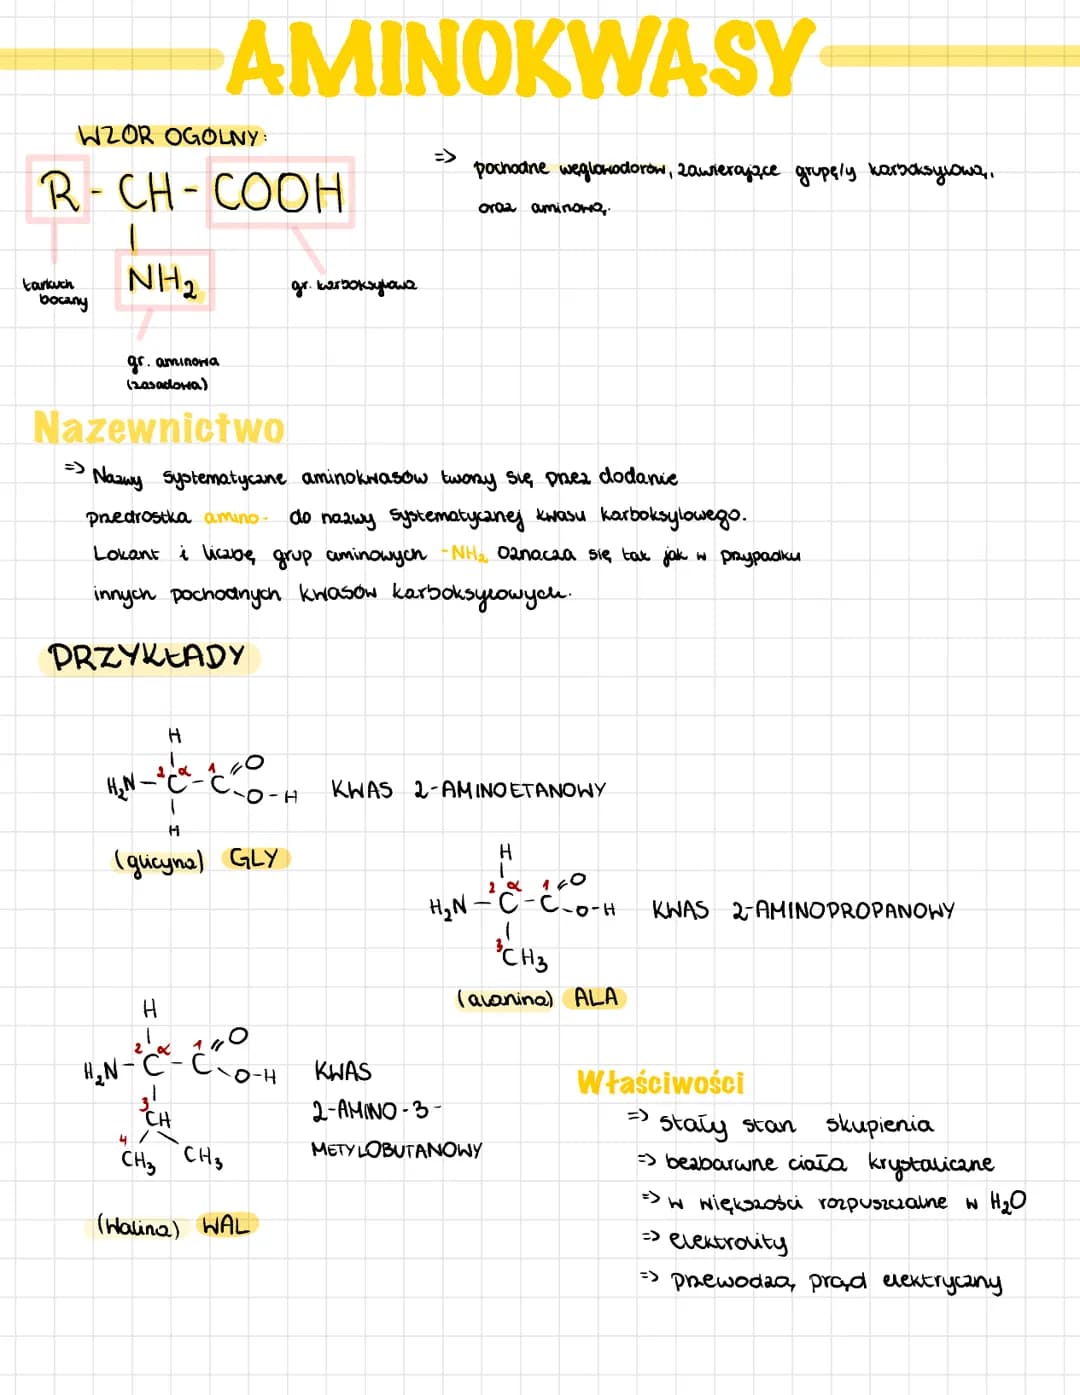 AMINOKWASY
WZÓR OGÓLNY:
R - CH - COOH
NH₂
łańcuch
boczny
gr. karboksylowa
gr. aminowa
(zasadowa)
=> pochodne węglowodorów, zawierające grupę/y karboksylową,
oraz aminową.
Nazewnictwo
=> Nazwy systematyczne aminokwasów tworzy się przez dodanie
przedrostka amino- do nazwy systematycznej kwasu karboksylowego.
Lokant i liczbę grup aminowych -NH₂ oznacza się tak jak w przypadku
innych pochodnych kwasów karboksylowych.
PRZYKŁADY
H
H₂N - ²C^α - ¹C = O
- O - H
H
KWAS 2-AMINOETANOWY
(glicyna) GLY
H
H₂N - ²C^α - ¹C = O
- O - H
³CH₃
KWAS 2-AMINOPROPANOWY
(alanina) ALA
H
H₂N - ²C^α - ¹C = O
- O - H
³CH
⁴CH₃ CH₃
KWAS
2-AMINO-3-
METYLOBUTANOWY
(Walina) WAL
Właściwości
=> stały stan skupienia
=> bezbarwne ciała krystaliczne
=> w większości rozpuszczalne w H₂O
=> elektrolity
=> przewodzą prąd elektryczny